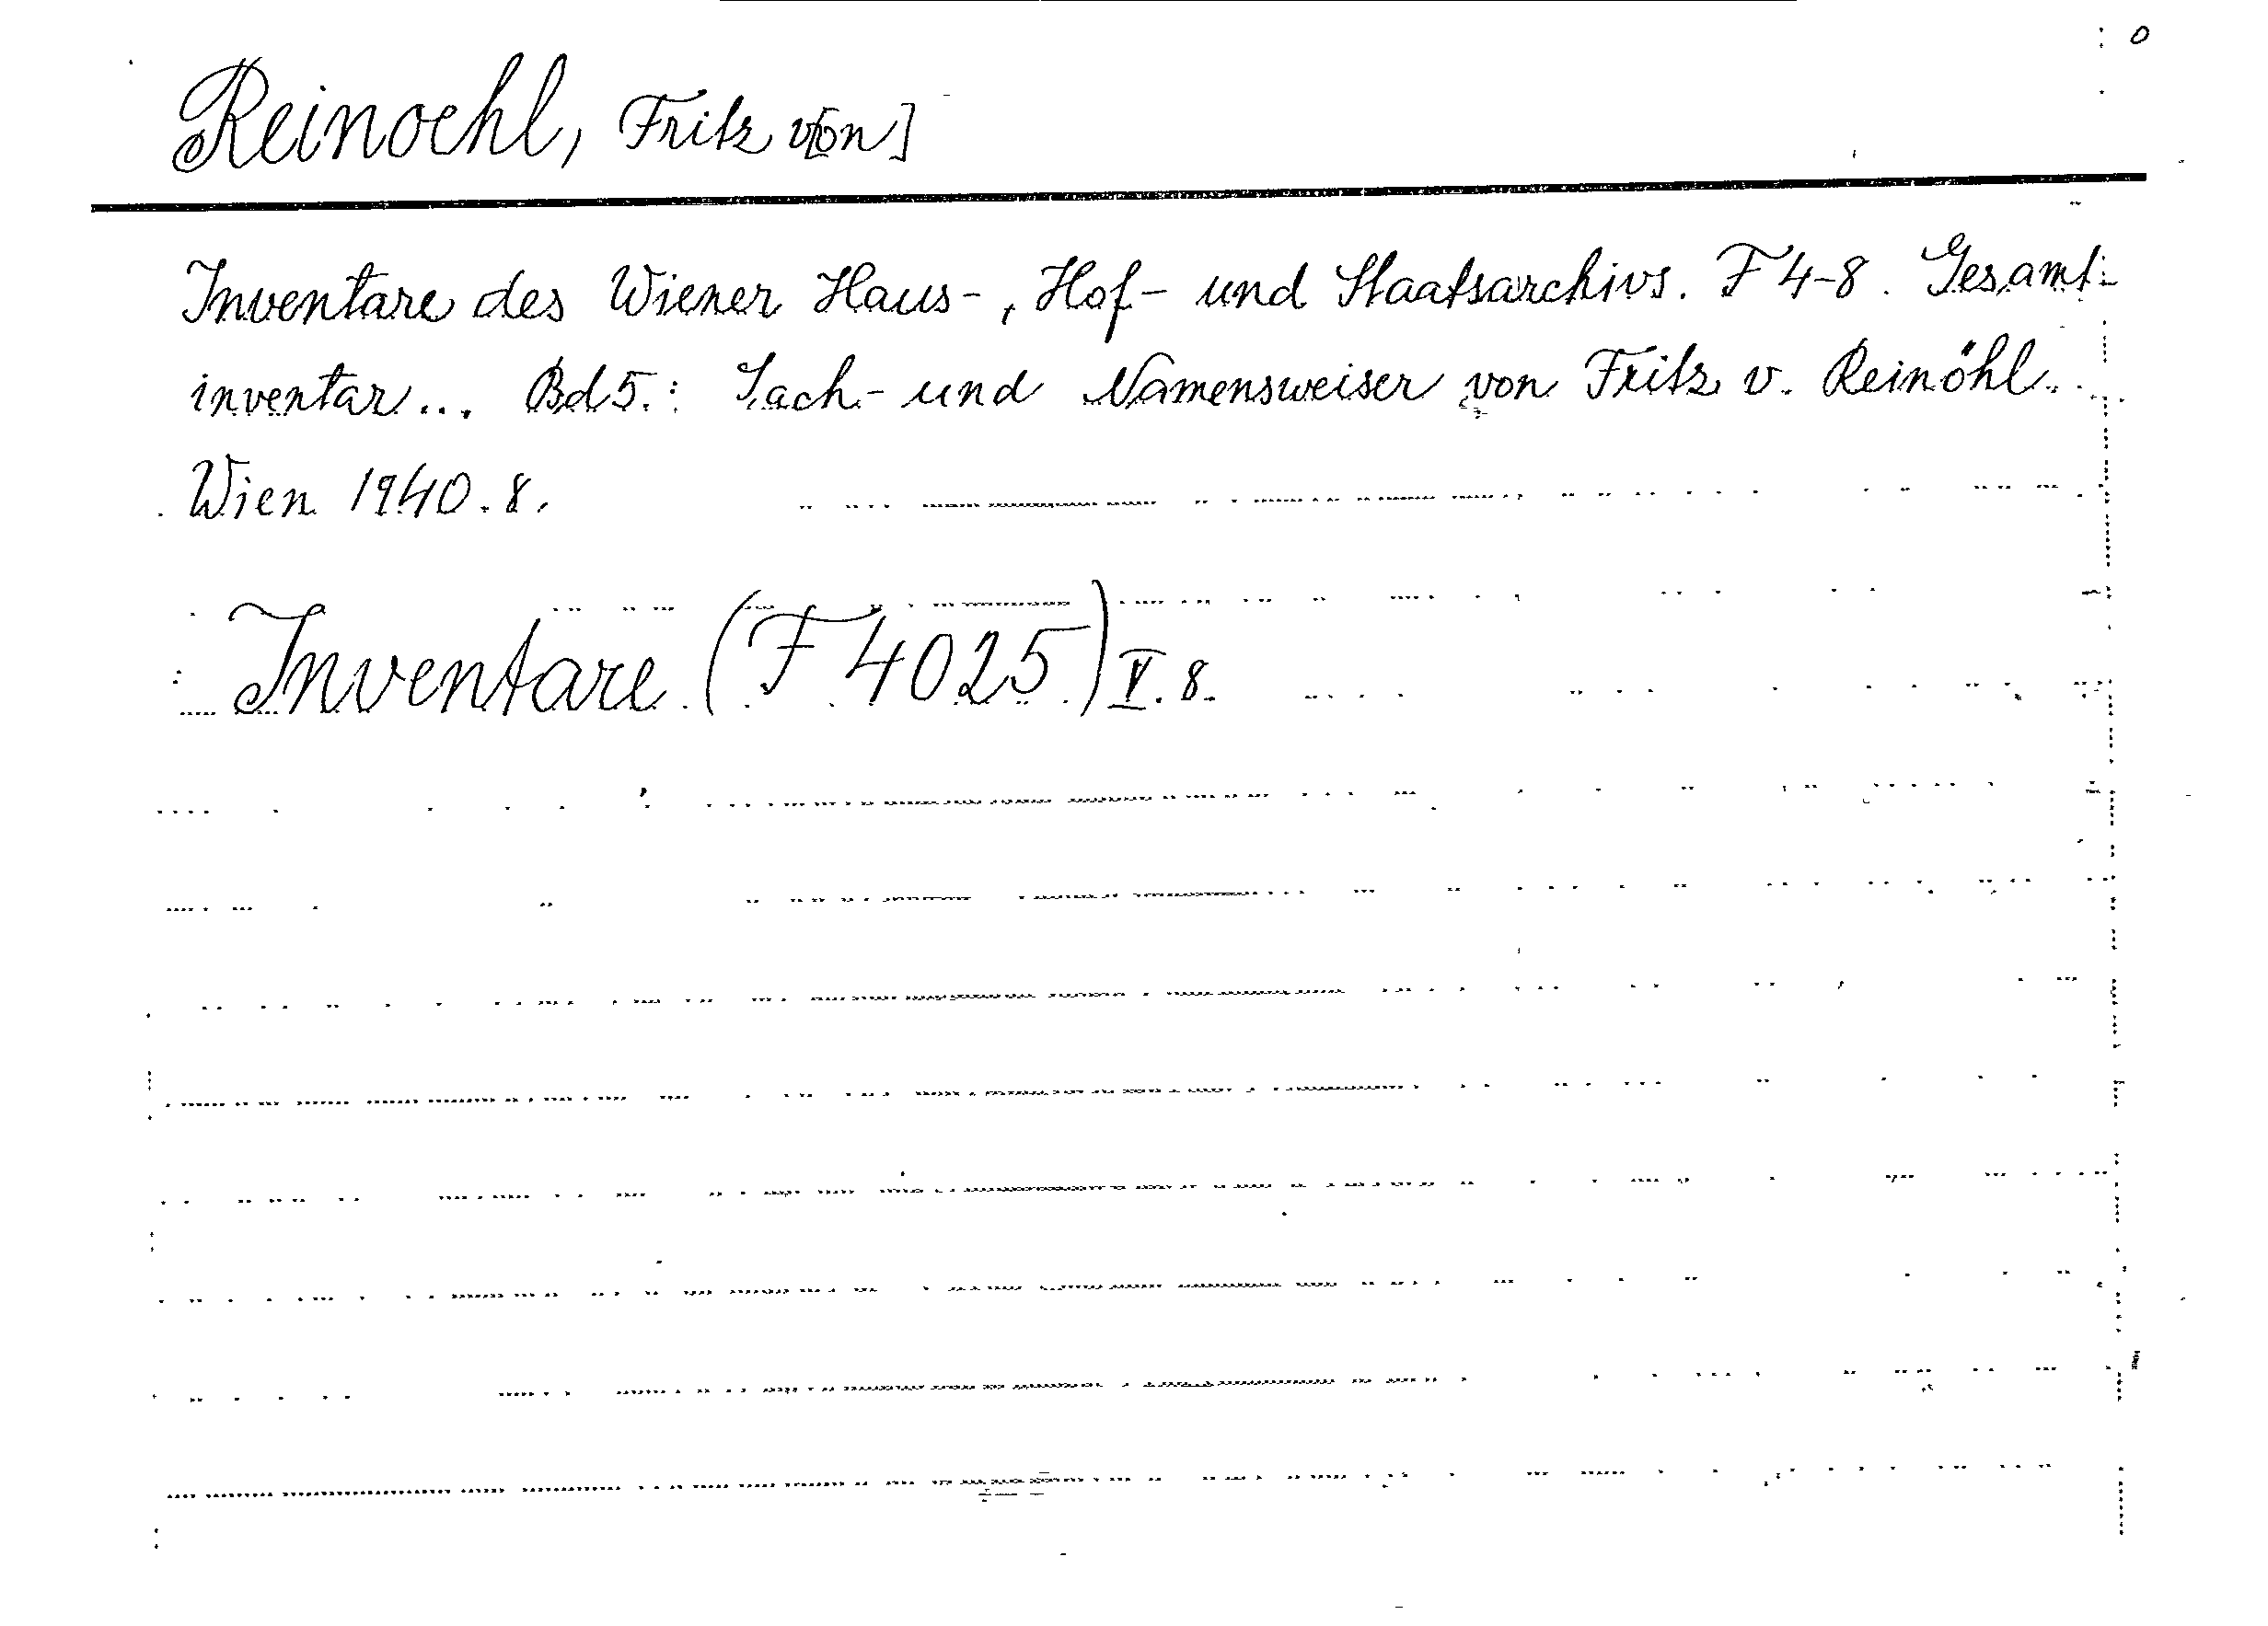 Reinoehl, Fritz v[on]
Inventare des Wiener Haus-, Hof- und Staatsarchivs. F 4-8. Gesamt-
inventar... Bd 5.: Sach- und Namensweiser von Fritz v. Reinöhl.
Wien 1940. 8.
Inventare (F 4025) V. 8.